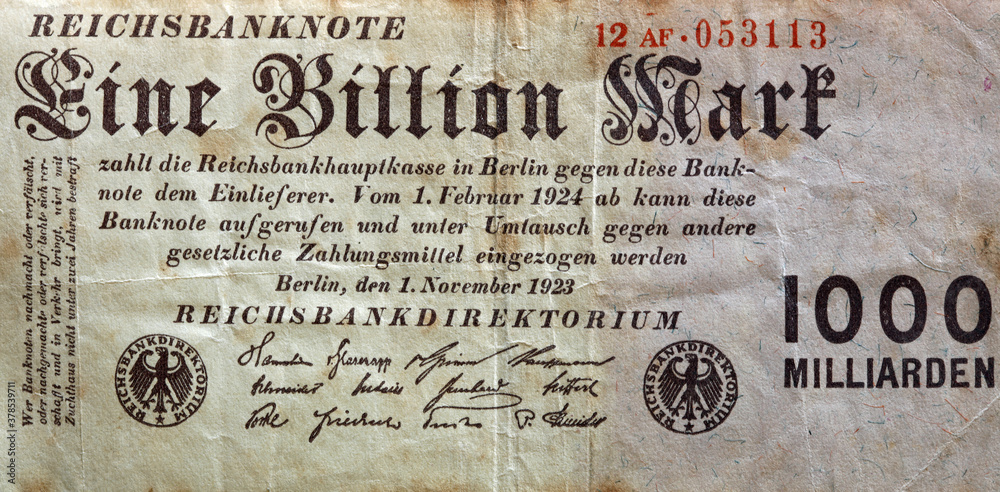 REICHSBANKNOTE
12 AF·053113
Eine Billion Mark
zahlt die Reichsbankhauptkasse in Berlin gegen diese Bank-
note dem Einlieferer. Vom 1. Februar 1924 ab kann diese
Banknote aufgerufen und unter Umtausch gegen andere
gesetzliche Zahlungsmittel eingezogen werden
Berlin, den 1. November 1923
REICHSBANKDIREKTORIUM
Wer Banknoten nachmacht oder verfälscht,
oder nachgemachte oder verfälschte sich ver-
schafft und in Verkehr bringt, wird mit
Zuchthaus nicht unter zwei Jahren bestraft
1000
MILLIARDEN
REICHSBANKDIREKTORIUM
REICHSBANKDIREKTORIUM
Kauffmann
Schneider
Seiffert
Vocke Friedrich
P. Schneider
Adobe Stock | #378539711